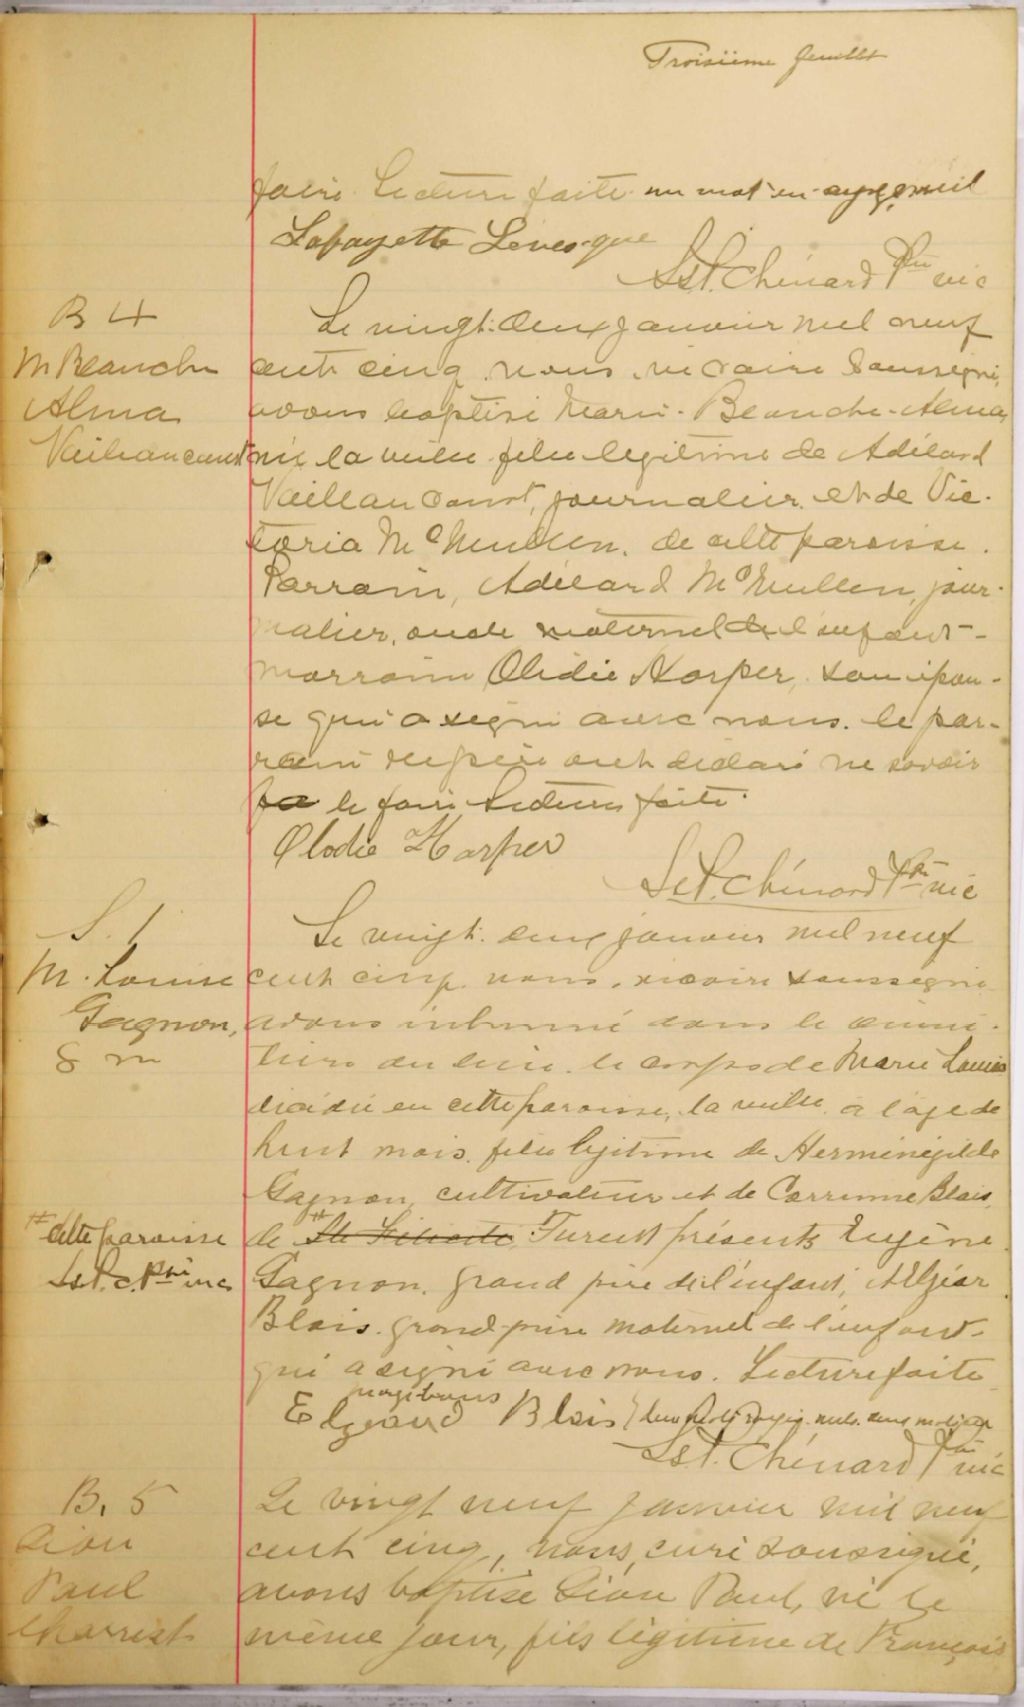 Troisième feuillet
faire. Lecture faite. un mot en
Lafayette Levesque
J. S. P. Chénard Ptre vic
B 4
M Blanche
Alma
Vaillancourt
Le vingt-deux janvier mil neuf
cent cinq nous, vicaire soussigné,
avons baptisé Marie-Blanche-Alma,
née la veille fille légitime de Adélard
Vaillancourt, journalier et de Vic-
toria McMullen, de cette paroisse.
Parrain, Adélard McMullen, jour-
nalier, oncle maternel de l'enfant-
marraine Olidie Harper, son épou-
se qui a signé avec nous. le par-
rain le père ont déclaré ne savoir
le faire Lecture faite.
Olodie Harper
J. S. P. Chénard Ptre vic
S. 1
M. Louise
Gagnon,
8 m
Le vingt-deux janvier mil neuf
cent cinq nous, vicaire soussigné
avons inhumé dans le cime-
tière du lieu le corps de Marie Louise
décédée en cette paroisse, la veille à l'âge de
huit mois, fille légitime de Herménégilde
Gagnon, cultivateur et de Corrinne Blais,
# cette paroisse
L. s. P. C. Ptre vic
de # Ste Félicité. Furent présents Eugène
Gagnon, grand père de l'enfant, Alzéar
Blais grand-père maternel de l'enfant-
qui a signé avec nous. Lecture faite
Elzeard Blais
J. S. P. Chénard Ptre vic
B. 5
Léon
Paul
Charest
Le vingt neuf janvier mil neuf
cent cinq, nous, curé soussigné,
avons baptisé Léon Paul, né le
même jour, fils légitime de François